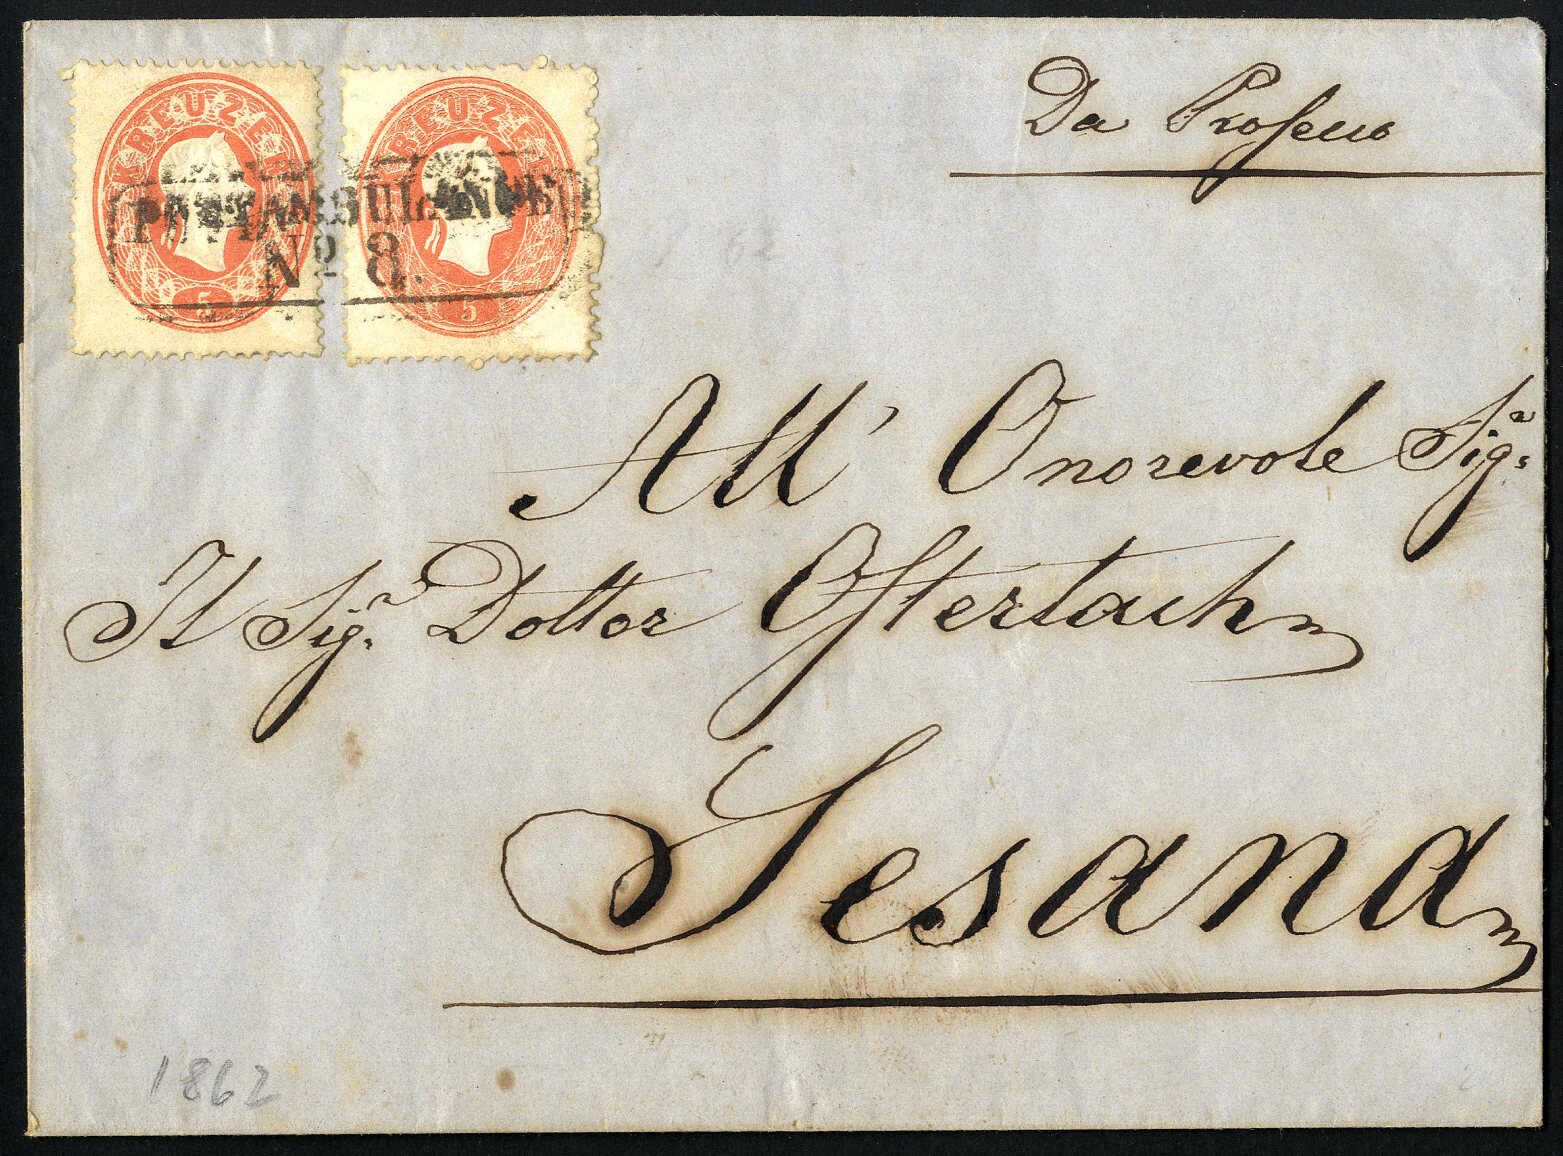 KREUZER
5
KREUZER
5
POSTAMBULANCE
Nº 8.
Da Prosecco
All' Onorevole Sigʳ
Il Sigʳ Dottor Osterlach
Sesana
1862